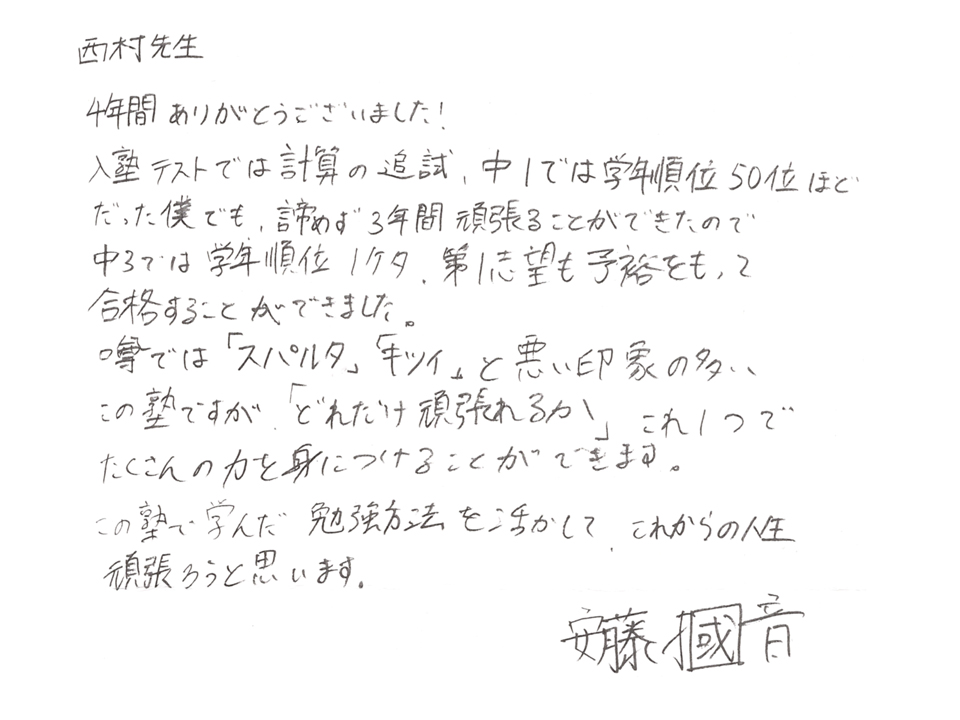 西村先生
4年間ありがとうございました!
入塾テストでは計算の追試、中1では学年順位50位ほど
だった僕でも、諦めず3年間頑張ることができたので
中3では学年順位1ケタ、第1志望も予裕をもって
合格することができました。
噂では「スパルタ」「キツイ」と悪い印象の多い
この塾ですが、「どれだけ頑張れるか」これ1つで
たくさんの力を身につけることができます。
この塾で学んだ勉強方法を活かして、これからの人生
頑張ろうと思います。
安藤摑音